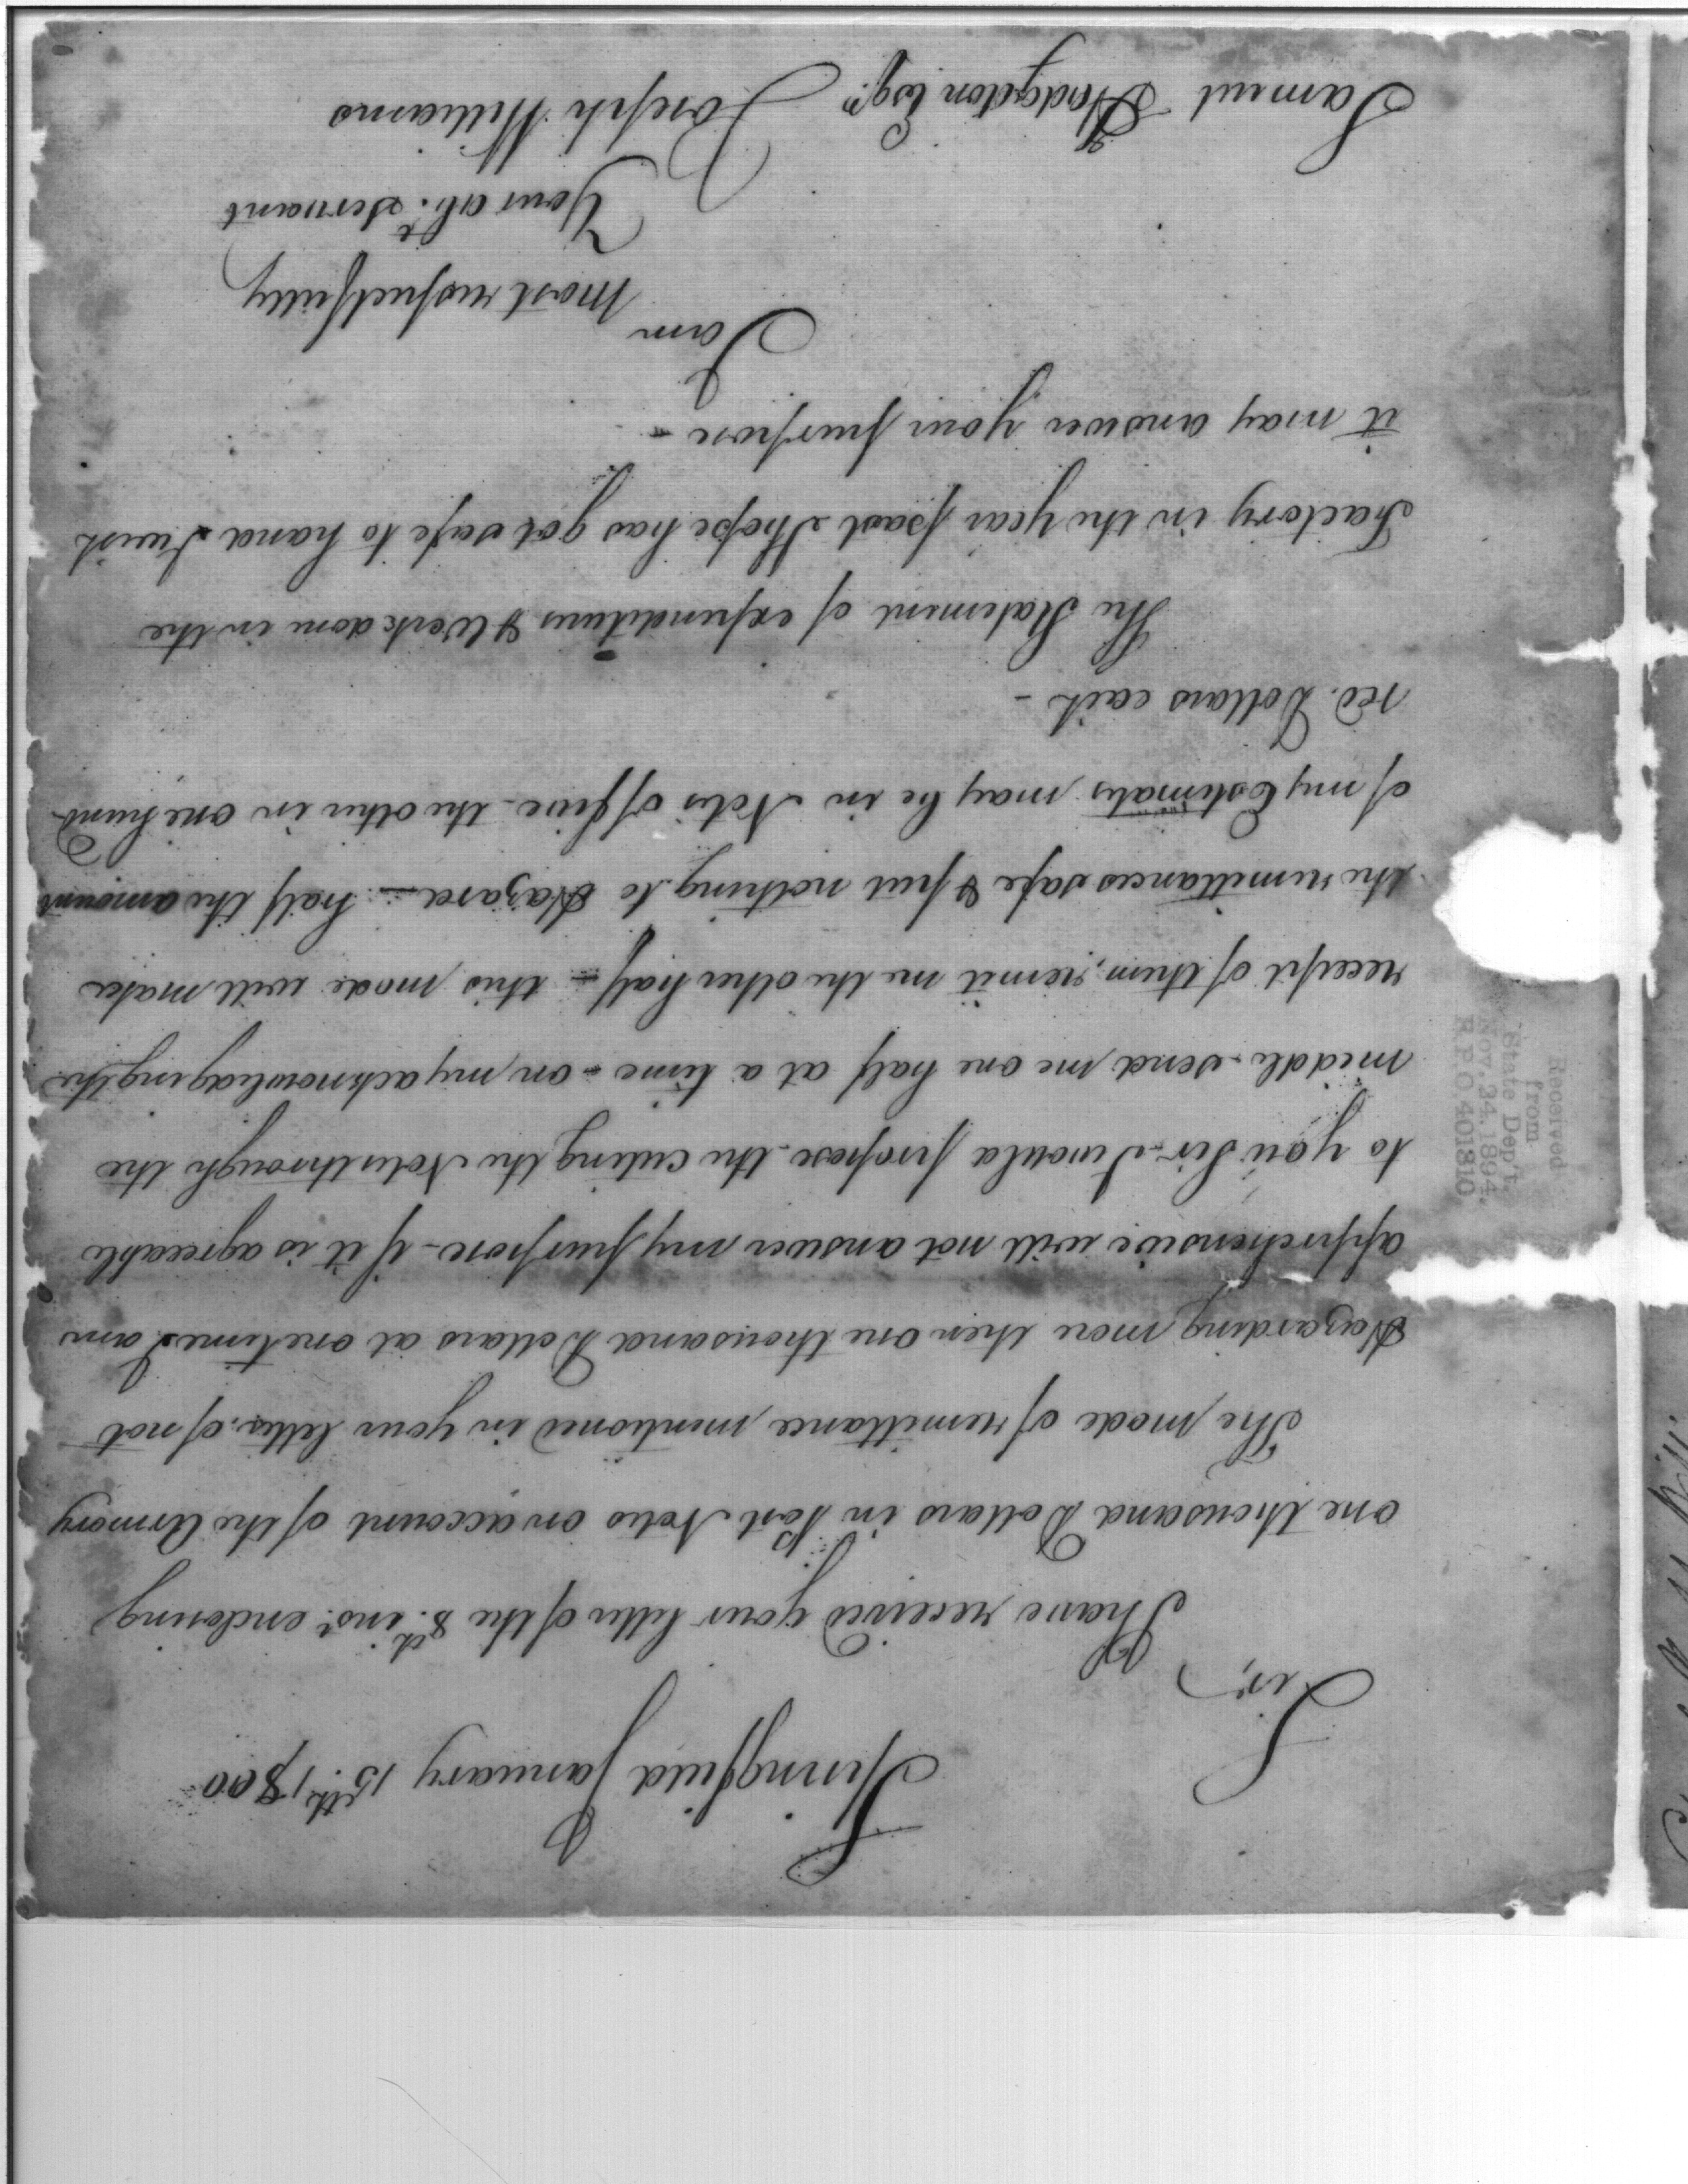 Springfield January 15th. 1800
Sir,
I have received your letter of the 8th. inst. enclosing
one thousand Dollars in Post Notes on account of the Armory
The mode of remittance mentioned in your letter of not
Hazarding more then one thousand Dollars at one time I am
apprehensive will not answer my purpose - if it is agreeable
to you Sir - I would propose the cuting the Notes through the
middle - send me one half at a time - on my acknowledging the
receipt of them, remit me the other half - this mode will make
the remittances safe & put nothing to Hazard - half the amount
of my Estimates may be in Notes of five - the other in one hund-
red. Dollars each -
The Statement of expenditures & Work done in the
Factory in the year past I hope has got safe to hand I wish
it may answer your purpose -
I am
most respectfully
Your obt. Servant
Joseph Williams
Samuel Hodgdon Esqr.
Received
from
State Dep't.
Nov. 24. 1894.
R.P.O. 401810